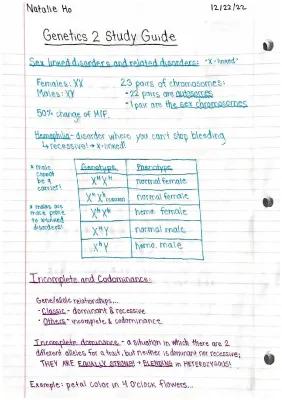 Natalie Ho
12/22/22
Genetics 2 Study Guide
Sex linked disorders and related disorders: "X-linked"
Females: XX
Males: XY
50% change of M/F.
23 pairs of chromosomes:
- 22 pairs are autosomes
- 1 pair are the sex chromosomes
Hemophilia - disorder where you can't stop bleeding
↳ recessive! → X-linked!
* male cannot be a carrier!
* males are more prone to X-linked disorders!
Genotype Phenotype
XᴴXᴴ normal female
XᴴXʰ normal female
XʰXʰ hemo. female
XᴴY normal male
XʰY hemo. male
Incomplete and Codominance:
Gene/allele relationships...
- Classic - dominant & recessive
- Others - incomplete & codominance
Incomplete dominance - a situation in which there are 2
different alleles for a trait, but neither is dominant nor recessive;
THEY ARE EQUALLY STRONG! → BLENDING in HETEROZYGOUS!
Example: petal color in 4 O'clock flowers...